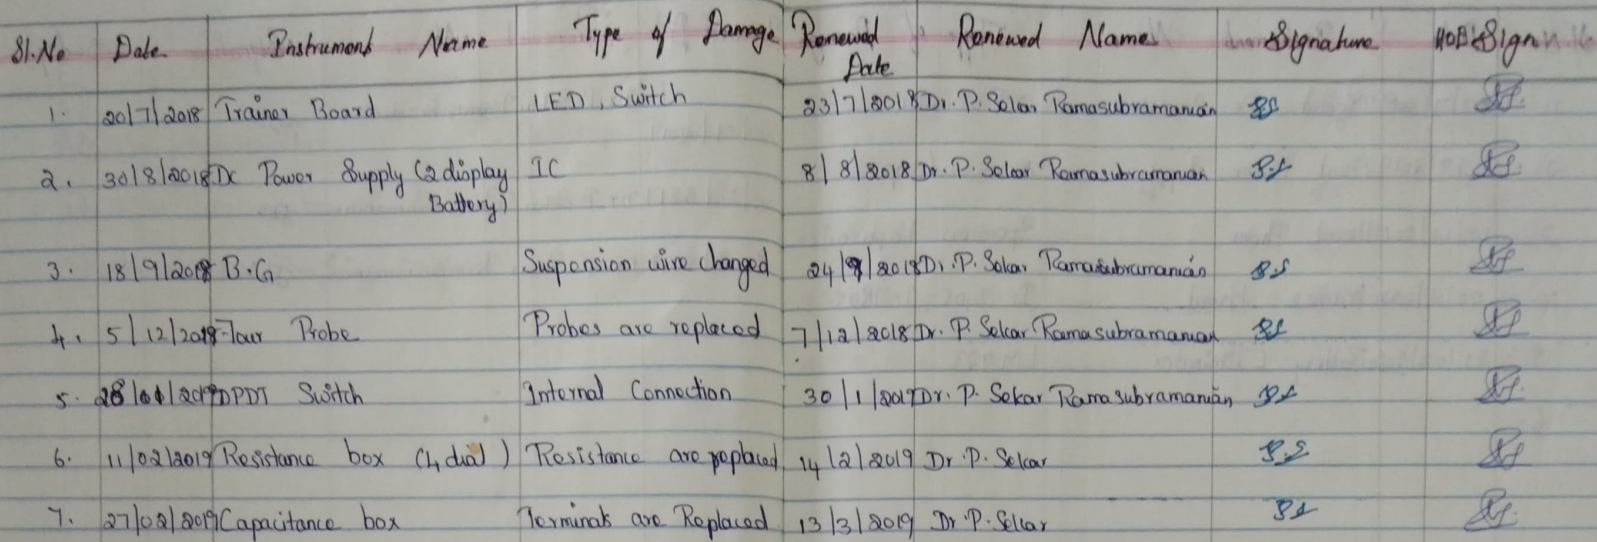 Sl.No Date Instrument Name Type of Damage Renewed Date Renewed Name Signature HOD Sign
1. 20/7/2018 Trainer Board LED, Switch 23/7/2018 Dr. P. Sekar Ramasubramanian
2. 30/8/2018 Dc Power Supply (2 display IC 8/8/2018 Dr. P. Sekar Ramasubramanian P.S
Battery)
3. 18/9/2018 B.G Suspension wire changed 24/9/2018 Dr. P. Sekar Ramasubramanian P.S
4. 5/12/2018 Four Probe Probes are replaced 7/12/2018 Dr. P. Sekar Ramasubramanian
5. 28/01/2019 DPDT Switch Internal Connection 30/1/2019 Dr. P. Sekar Ramasubramanian P.S
6. 11/02/2019 Resistance box (4 dial) Resistance are replaced 14/2/2019 Dr. P. Sekar P.S
7. 27/02/2019 Capacitance box Terminals are Replaced 13/3/2019 Dr. P. Sekar P.S